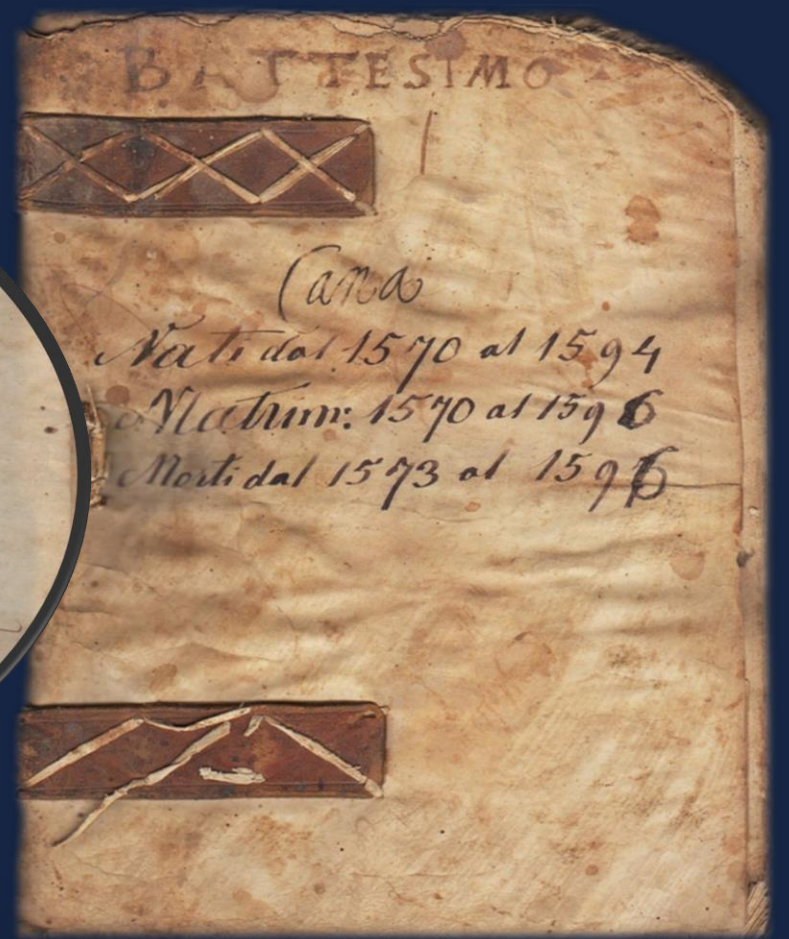 BATTESIMO
Cana
Nati dal 1570 al 1594
Matrim: 1570 al 1596
Morti dal 1573 al 1596